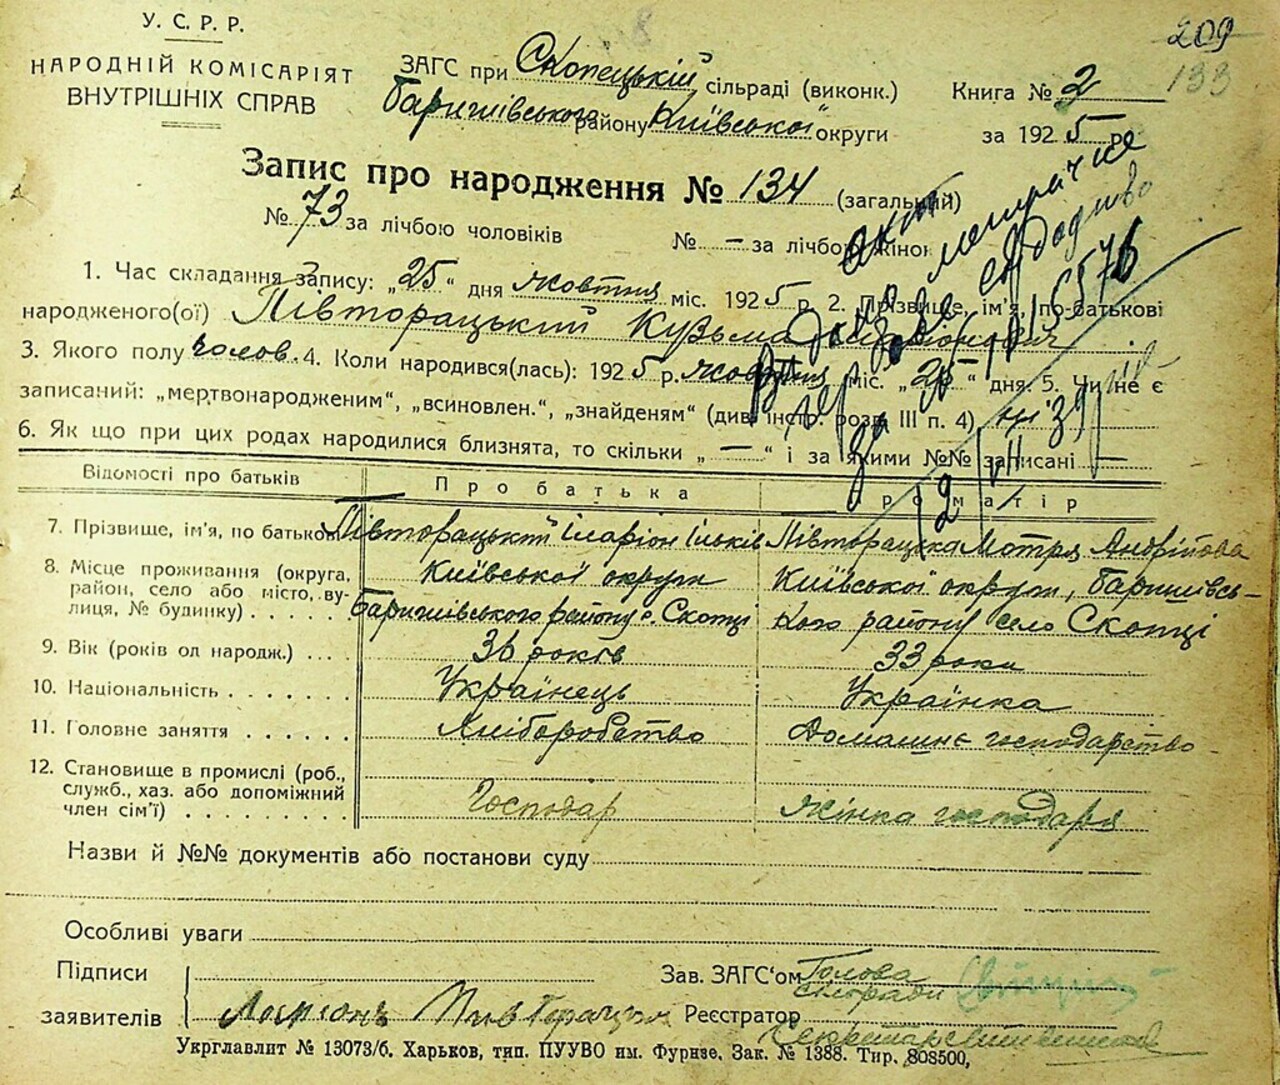 У. С. Р. Р.
НАРОДНІЙ КОМІСАРІЯТ
ВНУТРІШНІХ СПРАВ
209
133
ЗАГС при Скопецькій сільраді (виконк.)
Баришівського району Київської округи
Книга № 2
за 1925 р.
Запис про народження № 134 (загальний)
№ 73 за лічбою чоловіків № — за лічбою жінок
1. Час складання запису: „25" дня жовтня міс. 1925 р. 2. Прізвище, ім'я, по-батькові
народженого(ої) Півторацький Кузьма
3. Якого полу чолов. 4. Коли народився(лась): 1925 р. жовтня міс. „25" дня. 5. Чи не є
записаний: „мертвонародженим", „всиновлен.", „знайденям" (див. інстр. розд. III п. 4)
6. Як що при цих родах народилися близнята, то скільки „ — " і за якими №№ записані —
Відомості про батьків Про батька Про матір
7. Прізвище, ім'я, по батькові Півторацький Іларіон Ільків Півторацька Мотря Андрійова
8. Місце проживання (округа, район, село або місто, вулиця, № будинку) Київської округи Київської округи, Баришівсь-
Баришівського району с. Скопці кого району село Скопці
9. Вік (років од народж.) 36 років 33 роки
10. Національність Українець Українка
11. Головне заняття Хліборобство Домашнє господарство
12. Становище в промислі (роб., служб., хаз. або допоміжний член сім'ї) Господар Жінка господаря
Назви й №№ документів або постанови суду
Особливі уваги
Підписи
заявителів
Зав. ЗАГС'ом Голова
сільради
Реєстратор
Секретар
Укрглавліт № 13073/б. Харьков, тип. ПУУВО им. Фрунзе. Зак. № 1388. Тир. 808500,